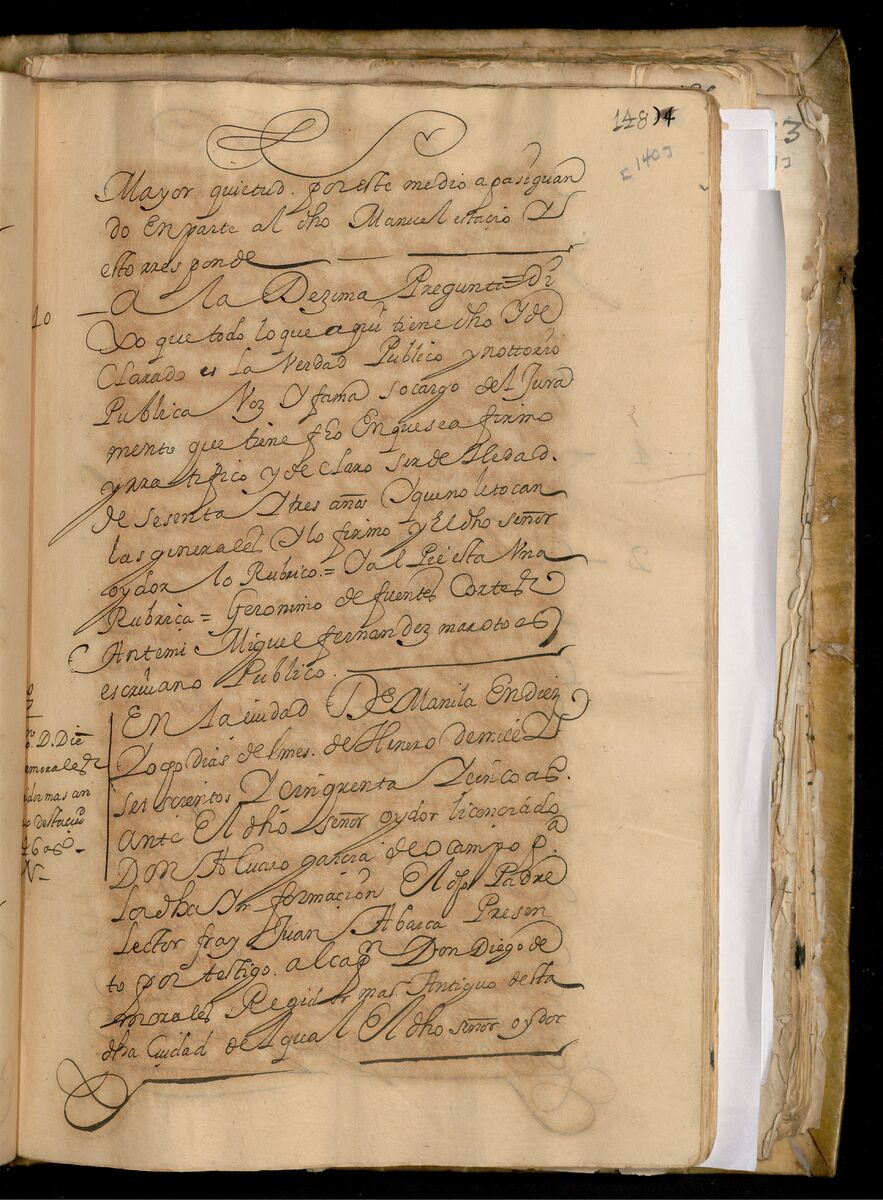 148)4
[140]
Mayor quietud. por este medio apasiguan
do En parte al dho Manuel estaçio Y
esto rresponde
10
A la Dezima Pregunta = Di
Xo que todo lo que aqui tiene dho Y de
Clarado es la Verdad Publico y nottorio
Publica Voz Y fama so cargo del Jura
mento que tiene fho En que se afirmo
y rratifico y de claro ser de Hedad
de sesenta Y tres años Y que no le tocan
las generales Y lo firmo y El dho señor
oydor lo Rubrico = Y al Pie esta Vna
Rubrica = Geronimo de fuentes Cortes
Antemi Miguel fernandez maroto
escriuano Publico.
En la ciudad De Manila En diez
Y ocho dias del mes. de Henero de mill Y
seiscientos Y cinqrenta Y cinco as.
ante El dho señor oydor licenciado
Don Aluaro garcia de ocampo pa
la dha Ynformaçion El dho Padre
Lector fray Juan Abarca Presen
to por testigo. al capn Don Diego de
morales Regidor mas Antiguo desta
dha Ciudad de qual El dho señor oydor
D. Die
morales
dor mas an
o desta ciu
46 as